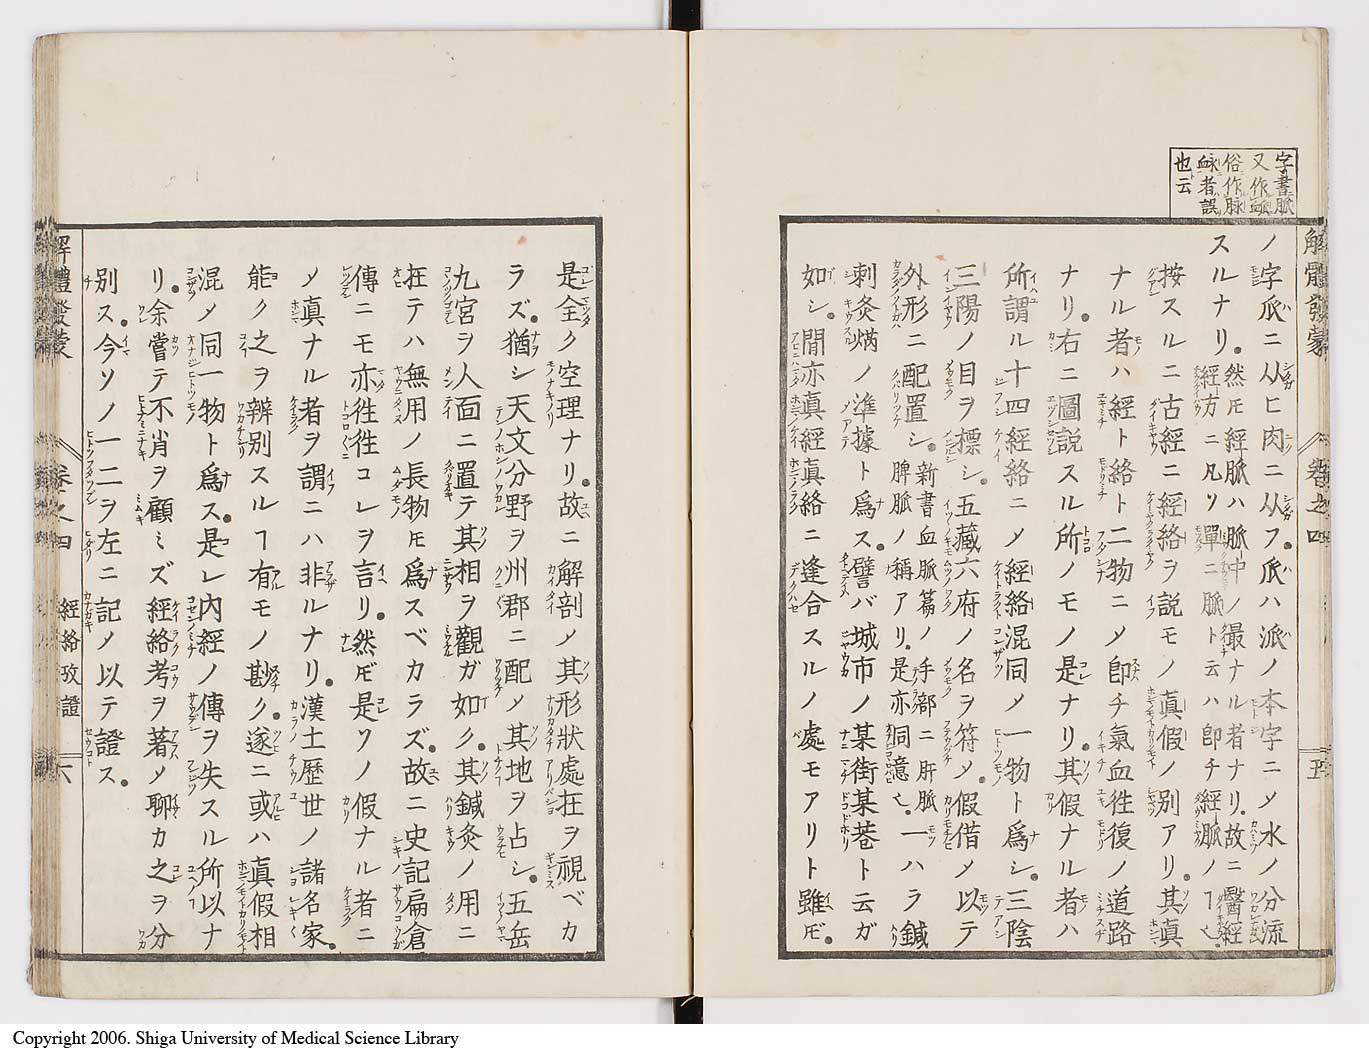 字書脈
又作衇
俗作脉
衂者誤
也云
解體發蒙 卷之四 五
ノ字𠂢ニ从ヒ肉ニ从フ𠂢ハ派ノ本字ニメ水ノ分流
スルナリ。然𪜈經脈ハ脈中ノ撮ナル者ナリ。故ニ醫經
經方ニ凡ソ單ニ脈ト云ハ卽チ經脈ノヿ也。
按スルニ古經ニ經絡ヲ説モノ真假ノ別アリ。其真
ナル者ハ經ト絡ト二物ニメ卽チ氣血徃復ノ道路
ナリ。右ニ圖説スル所ノモノ是ナリ。其假ナル者ハ
所謂ル十四經絡ニメ經絡混同メ一物ト爲シ。三陰
三陽ノ目ヲ標シ。五藏六府ノ名ヲ符メ。假借メ以テ
外形ニ配置シ。新書血脈篇ノ手部ニ肝脈
脾脈ノ稱アリ。是亦同意也。一ハラ鍼
刺灸焫ノ準據ト爲ス。譬バ城市ノ某街某巷ト云ガ
如シ。間亦真經真絡ニ逢合スルノ處モアリト雖𪜈。
是全ク空理ナリ。故ニ解剖メ其形狀處在ヲ視ベカ
ラズ。猶シ天文分野ヲ州郡ニ配メ其地ヲ占シ。五岳
九宮ヲ人面ニ置テ其相ヲ觀ガ如ク。其鍼灸ノ用ニ
在テハ無用ノ長物𪜈爲スベカラズ。故ニ史記扁倉
傳ニモ亦徃徃コレヲ言リ。然𪜈是ソノ假ナル者ニ
メ真ナル者ヲ謂ニハ非ルナリ。漢土歴世ノ諸名家。
能ク之ヲ辨別スルヿ有モノ尠ク。遂ニ或ハ真假相
混メ同一物ト爲ス。是レ内經ノ傳ヲ失スル所以ナ
リ。余嘗テ不肖ヲ顧ミズ經絡考ヲ著メ聊カ之ヲ分
別ス。今ソノ一二ヲ左ニ記メ以テ證ス。
解體發蒙 卷之四 經絡攷證 六
Copyright 2006. Shiga University of Medical Science Library